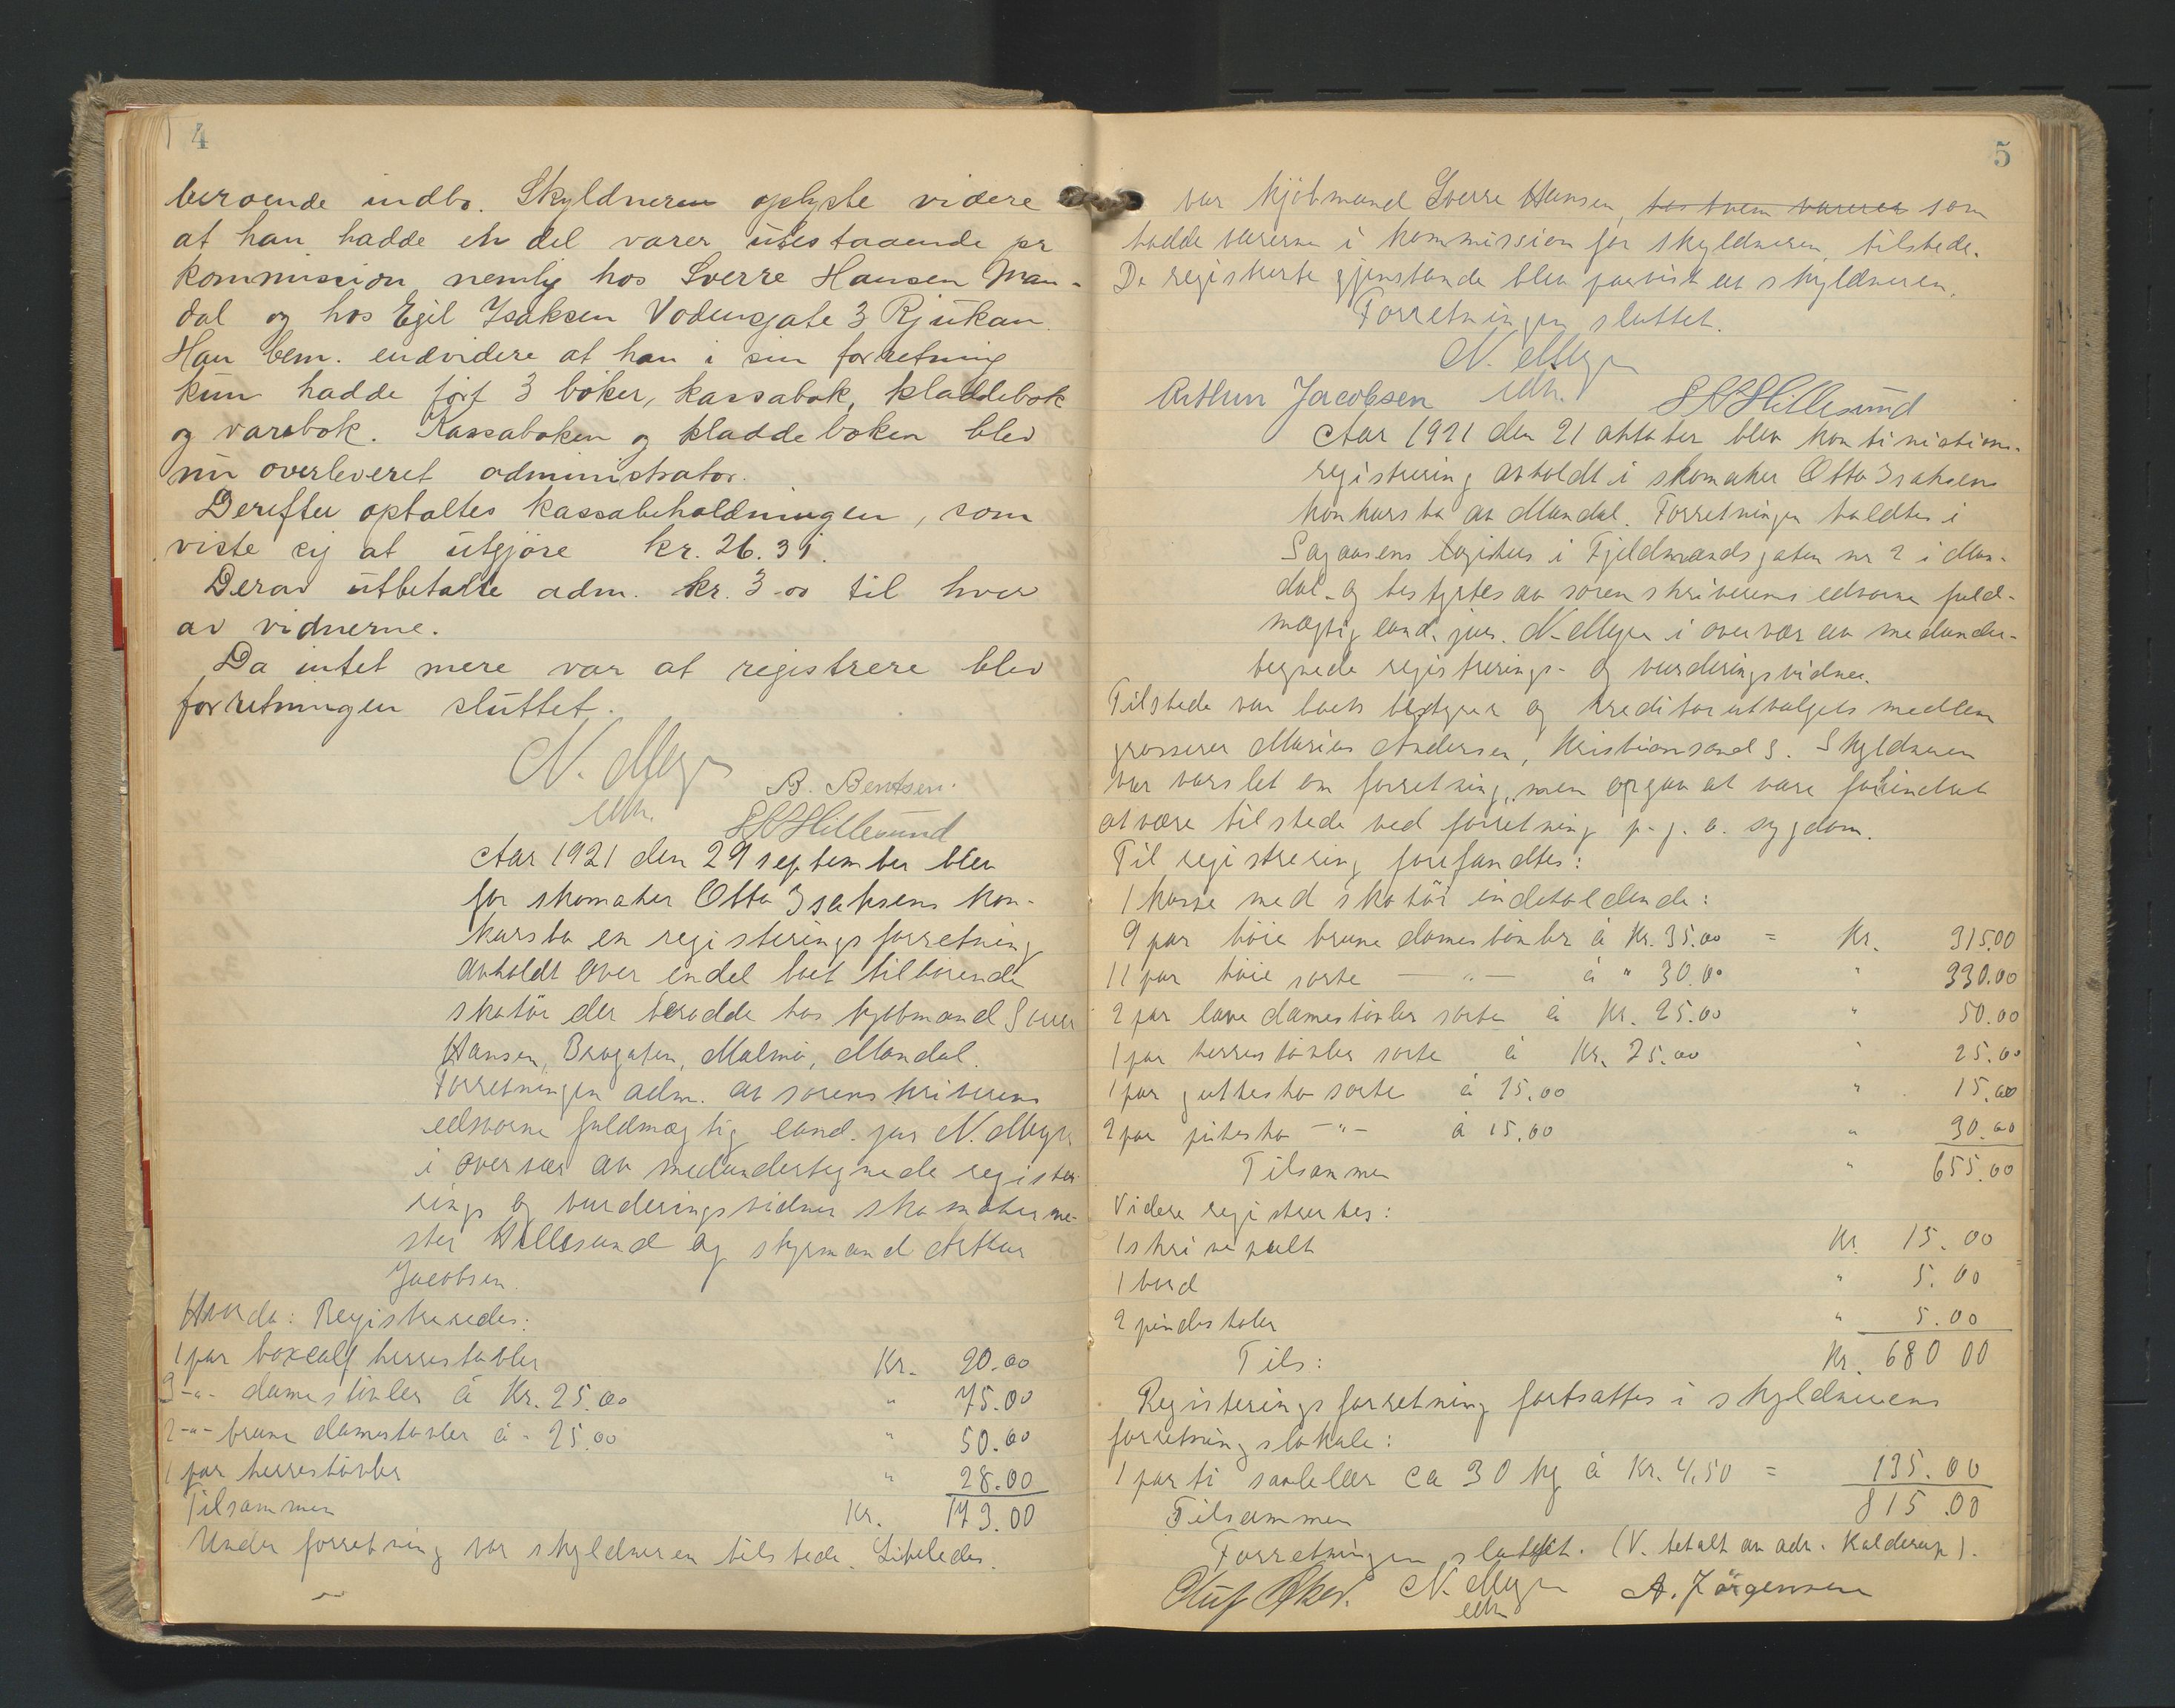 4
beroende indbo. Skyldneren oplyste videre
at han hadde en del varer utestaaende pr
kommission nemlig hos Sverre Hansen Man-
dal og hos Egil Isaksen Vodensgate 3 Rjukan.
Han bem. endvidere at han i sin forretning
kun hadde ført 3 bøker, kassabok, kladdebok
og varebok. Kassaboken og kladdeboken blev
nu overleveret administrator.
Derefter optaltes kassabeholdningen, som
viste sig at utgjøre kr. 26.31.
Derav utbetalte adm. kr. 3-00 til hver
av vidnerne.
Da intet mere var at registrere blev
forretningen sluttet.
N. Meyer
edm.
B. Bentsen.
Hillesund
Aar 1921 den 29 september blev
for skomaker Otto Isaksens kon-
kursbo en registeringsforretning
avholdt over endel boet tilhørende
skotøi der berodde hos kjøbmand Sverre
Hansen, Brogaten, Malmø, Mandal.
Forretningen adm. av sorenskriverens
edsvorne fuldmægtig cand. jur N. Meyer
i overvær av medundertegnede registre-
rings og vurderingsvidner skomakerme-
ster Hillesund og styrmand Arthur
Jacobsen.
Hvorda: Registreredes:
1 par boxcalf herrestøvler Kr. 20.00
3 -"- damestøvler à Kr. 25.00 " 75.00
2 -"- brune damestøvler à - 25.00 " 50.00
1 par herrestøvler " 28.00
Tilsammen Kr. 173.00
Under forretning var skyldneren tilstede. Likeledes
5
var kjøbmand Sverre Hansen, hos hvem varerer som
hadde varerne i kommission for skyldneren, tilstede.
De registrerte gjenstande blev paavist av skyldneren.
Forretningen sluttet.
N. Meyer
edm.
Arthur Jacobsen
Hillesund
Aar 1921 den 21 oktober blev kontinuations-
registrering avholdt i skomaker Otto Isaksens
konkursbo av Mandal. Forretningen holdtes i
Sagaasens logishus i Fjeldmandsgaten nr 2 i Man-
dal og bestyrtes av sorenskriverens edsvorne fuld-
mægtig cand. jur. N. Meyer i overvær av medunder-
tegnede registrerings- og vurderingsvidner.
Tilstede var boets bestyrer og kreditorutvalgets medlem
grosserer Marius Andersen, Kristiansand S. Skyldneren
var varslet om forretning, men opgav at være forhindret
at være tilstede ved forretning p. g. a. sygdom.
Til registrering forefandtes:
1 kasse med skotøi indeholdende:
9 par høie brune damestøvler à Kr. 35.00 = Kr. 315.00
11 par høie sorte - " - à " 30.00 " 330.00
2 par lave damestøvler sorte à Kr. 25.00 " 50.00
1 par herrestøvler sorte à Kr. 25.00 " 25.00
1 par guttesko sorte à 15.00 " 15.00
2 par pikesko -"- à 15.00 " 30.00
Tilsammen " 655.00
Videre registrertes:
1 skrivepult Kr. 15.00
1 bord " 5.00
2 pindestoler " 5.00
Tils: Kr. 680 00
Registeringsforretning fortsattes i skyldnerens
forretningslokale:
1 parti saalelær ca 30 kg à Kr. 4,50 = 135.00
Tilsammen 815.00
Forretningen sluttet. (V. betalt av adv. Kalderup).
Oluf N. Meyer A. Jørgensen
edm